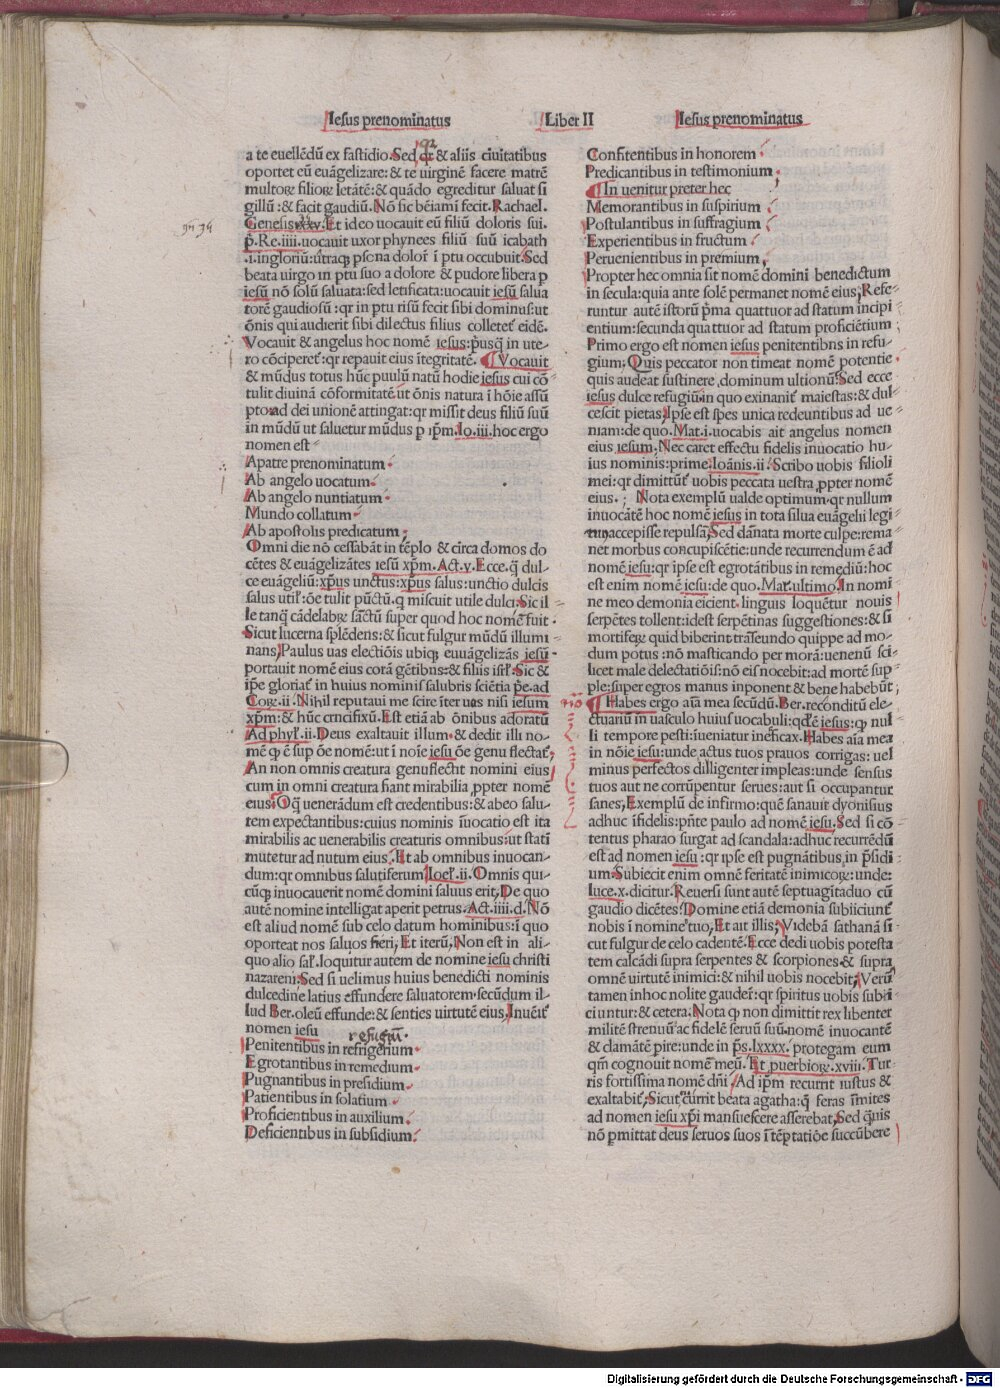 Iesus prenominatus
Liber II
Iesus prenominatus
a te euellēdū ex fastidio. Sed qr & aliis ciuitatibus
oportet eū euāgelizare: & te uirginē facere matrē
multoꝝ filioꝝ letātē: & quādo egreditur saluat si
gillū: & facit gaudiū. Nō sic bēiamī fecit. Rachael.
Genesis xxxv. Et ideo uocauit eū filiū doloris sui.
p. Re. iiii. uocauit uxor phynees filiū suū icabath
.i. ingloriū: utraqꝫ psona doloꝝ ī ptu occubuit. Sed
beata uirgo in ptu suo a dolore & pudore libera p
iesū nō solū saluata: sed letificata: uocauit iesū salua
torē gaudiosū: qr in ptu risū fecit sibi dominus: ut
ōnis qui audierit sibi dilectus filius colletet eidē.
Vocauit & angelus hoc nomē iesus: pusqꝫ in ute-
ro cōciperet: qr repauit eius ītegritatē. Vocauit
& mūdus totus hūc puulū natū hodie iesus cui cō
tulit diuinā cōformitatē ut ōnis natura ī hōie assū
pto ad dei unionē attingat: qr missit deus filiū suū
in mūdū ut saluetur mūdus p ipm. Io. iii. hoc ergo
nomen est
A patre prenominatum.
Ab angelo uocatum.
Ab angelo nuntiatum.
Mundo collatum.
Ab apostolis predicatum;
Omni die nō cessabāt in tēplo & circa domos do
cētes & euāgelizātes iesū xpm. Act. v. Ecce. q̄ dul-
ce euāgeliū: xpus unctus: xpus salus: unctio dulcis
salus util: ōe tulit pūctū. q miscuit utile dulci. Sic il-
le tanq̄ cādelabꝝ sāctū super quod hoc nomē fuit
Sicut lucerna splēdens: & sicut fulgur mūdū illumi
nans; Paulus uas electiōis ubiqꝫ euuāgelizās iesū
portauit nomē eius corā gētibus: & filiis isrl. Sic &
ipe gloriat in huius nominis salubris sciētia pe. ad
Coꝝ. ii. Nihil reputaui me scire iter uos nisi iesum
xpm: & hūc crucifixū. Est etiā ab ōnibus adoratū
Ad phyl. ii. Deus exaltauit illum. & dedit illi no-
mē qꝫ ē sup ōe nomē: ut ī noīe iesu ōe genu flectat;
An non omnis creatura genuflecht nomini eius
cum in omni creatura fiant mirabilia ppter nomē
eius: O q̄ uenerādum est credentibus: & abeo salu-
tem expectantibus: cuius nominis īuocatio est ita
mirabilis ac uenerabilis creaturis omnibus: ut stati
mutetur ad nutum eius. Et ab omnibus inuocan-
dum: qr omnibus salutiferum Ioel. ii. Omnis qui-
cūqꝫ inuocauerit nomē domini saluus erit; De quo
autē nomine intelligat aperit petrus. Act. iiii. d. Nō
est aliud nomē sub celo datum hominibus: ī quo
oporteat nos saluos fieri; Et iterū; Non est in ali-
quo alio sal. loquitur autem de nomine iesu christi
nazareni: Sed si uelimus huius benedicti nominis
dulcedine latius effundere saluatorem secūdum il-
lud Ber. oleū effunde: & senties uirtutē eius. Inueīt
nomen iesu
refugiū.
Penitentibus in refrigerium.
Egrotantibus in remedium.
Pugnantibus in presidium.
Patientibus in solatium.
Proficientibus in auxilium.
Deficientibus in subsidium.
Confitentibus in honorem
Predicantibus in testimonium
In uenitur preter hec
Memorantibus in suspirium
Postulantibus in suffragium
Experientibus in fructum
Peruenientibus in premium,
Propter hec omnia sit nomē domini benedictum
in secula: quia ante solē permanet nomē eius; Refe-
runtur autē istorū pma quattuor ad statum incipi
entium: secunda quattuor ad statum proficiētium
Primo ergo est nomen iesus penitentibns in refu-
gium. Quis peccator non timeat nomē potentie
quis audeat sustinere, dominum ultionū: Sed ecce
iesus dulce refugiū. in quo exinanit maiestas: & dul-
cescit pietas. Ipse est spes unica redeuntibus ad ue
niam: de quo. Mat. i. uocabis ait angelus nomen
eius iesum; Nec caret effectu fidelis inuocatio hu-
ius nominis: prime. Ioānis. ii. Scribo uobis filioli
mei: qr dimittūt uobis peccata uestra ppter nomē
eius. ; Nota exemplū ualde optimum. qr nullum
inuocātē hoc nomē iesus in tota silua euāgelii legi
tur accepisse repulsā; Sed dānata morte culpe: rema
net morbus concupiscētie: unde recurrendum ē ad
nomē iesu: qr ipse est egrotātibus in remediū: hoc
est enim nomē iesu: de quo. Mat. ultimo. In nomi
ne meo demonia eicient. linguis loquētur nouis
serpētes tollent: idest serpētinas suggestiones: & si
mortifeꝝ quid biberint trāseundo quippe ad mo-
dum potus: nō masticando per morā: uenenū sci-
licet male delectatiōis: nō eis nocebit: ad mortē sup-
ple: super egros manus inponent & bene habebūt;
Habes ergo aīa mea secūdū. Ber. reconditū ele-
ctuariū in uasculo huius uocabuli: qd ē iesus: qꝫ nul
li tempore pesti: iueniatur inefficax. Habes aīa mea
in nōie iesu: unde actus tuos prauos corrigas: uel
minus perfectos dilligenter impleas: unde sensus
tuos aut ne corrūpentur serues: aut si occupantur
sanes; Exemplū de infirmo: quē sanauit dyonisius
adhuc īfidelis: pn̄te paulo ad nomē iesu. Sed si cō
tentus pharao surgat ad scandala: adhuc recurrēdū
est ad nomen iesu: qr ipse est pugnātibus in psidi
um. Subiecit enim omnē feritatē inimicoꝝ: unde:
luce. x. dicitur. Reuersi sunt autē septuagitaduo cū
gaudio dicētes: Domine etiā demonia subiiciunt
nobis ī nomine tuo; Et ait illis; Videbā sathanā si
cut fulgur de celo cadentē. Ecce dedi uobis potesta
tem calcādi supra serpentes & scorpiones & supra
omnē uirtutē inimici: & nihil uobis nocebit; Verū
tamen inhoc nolite gauder: qr spiritus uobis subii
ciuntur: & cetera. Nota qꝫ non dimittit rex libenter
militē strenuū ac fidelē seruū suū. nomē inuocantē
& damātē pire: unde in ps. lxxxx. protegam eum
qm̄ cognouit nomē meū. Et puerbioꝝ. xviii. Tur
ris fortissima nomē dn̄i. Ad ipm recurnt iustus &
exaltabit; Sicut currit beata agatha: q̄ feras īmites
ad nomen iesu xpi mansuescere asserebat; Sed q̄uis
nō pmittat deus seruos suos ī tēptatiōe succūbere